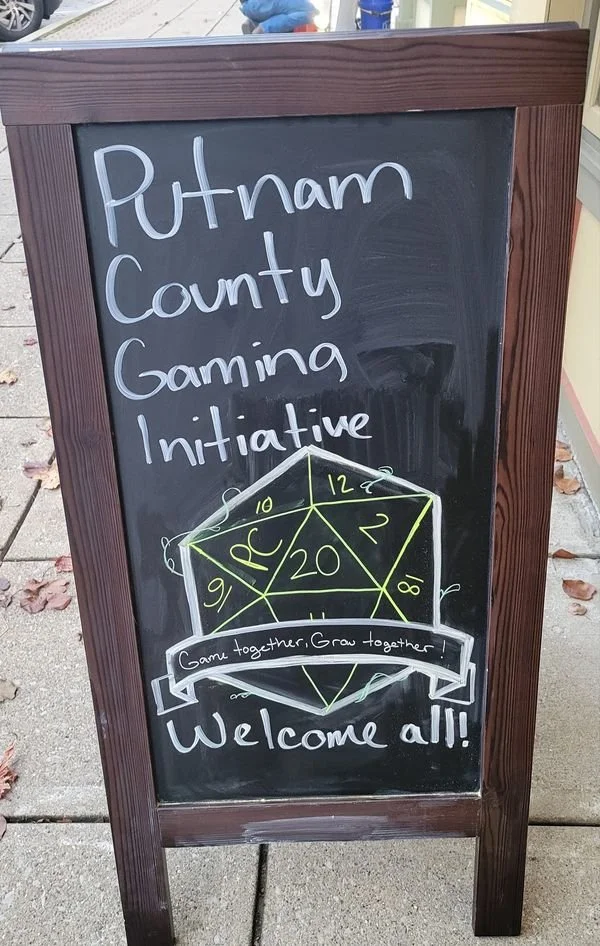 Putnam
County
Gaming
Initiative
10 12
PC 20 2
18
Game together, Grow together!
Welcome all!